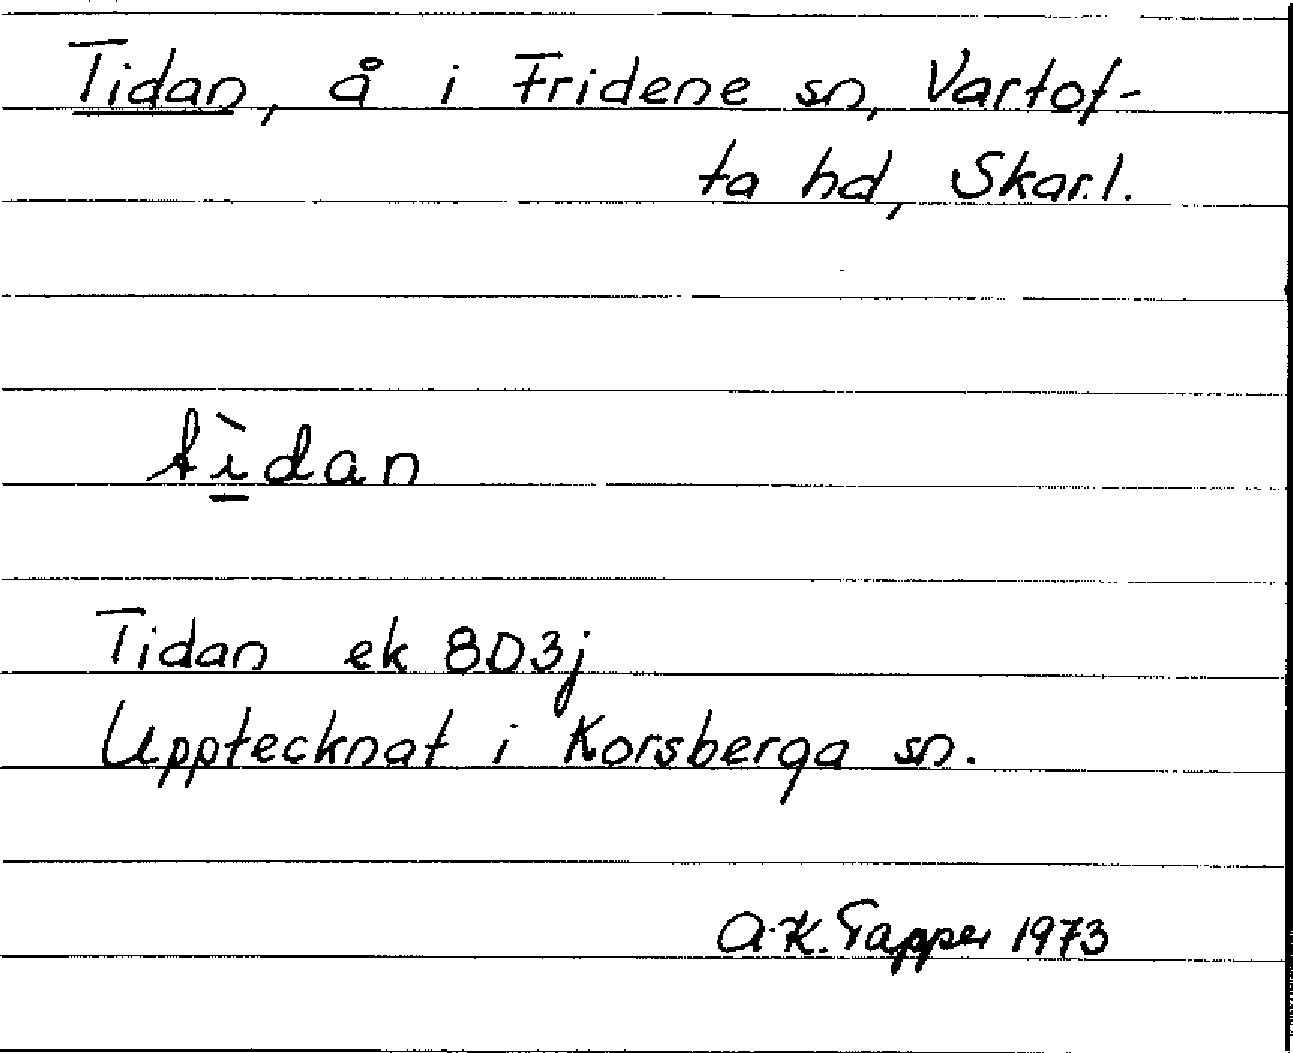 Tidan, å i Fridene sn, Vartof-
ta hd, Skar.l.
tìdan
Tidan ek 8D3j
Upptecknat i Korsberga sn.
A.K. Tapper 1973